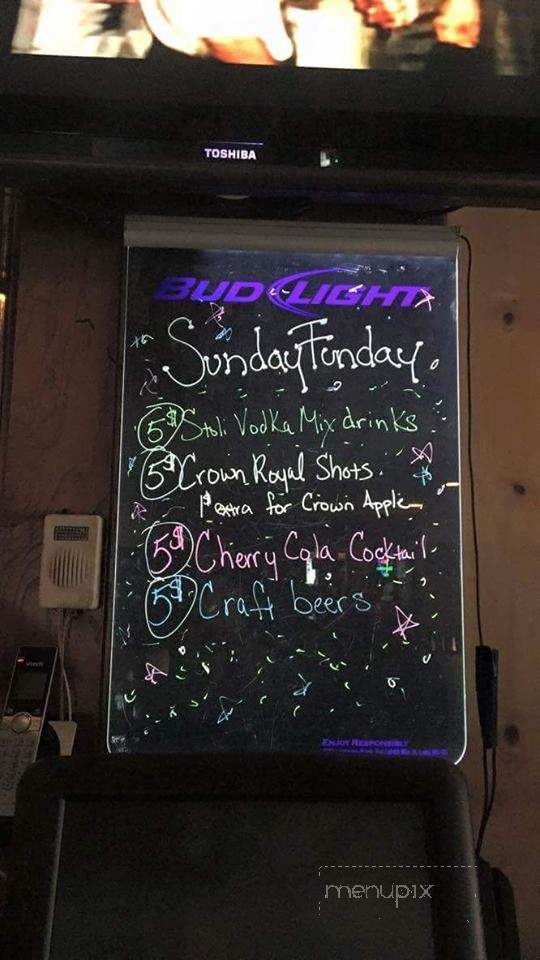 TOSHIBA
BUD LIGHT
Sunday Funday.
5$ Stoli Vodka Mix drinks
5$ Crown Royal Shots.
1$ extra for Crown Apple
5$ Cherry Cola Cocktail
5$ Craft beers
vtech
ENJOY RESPONSIBLY
menupix